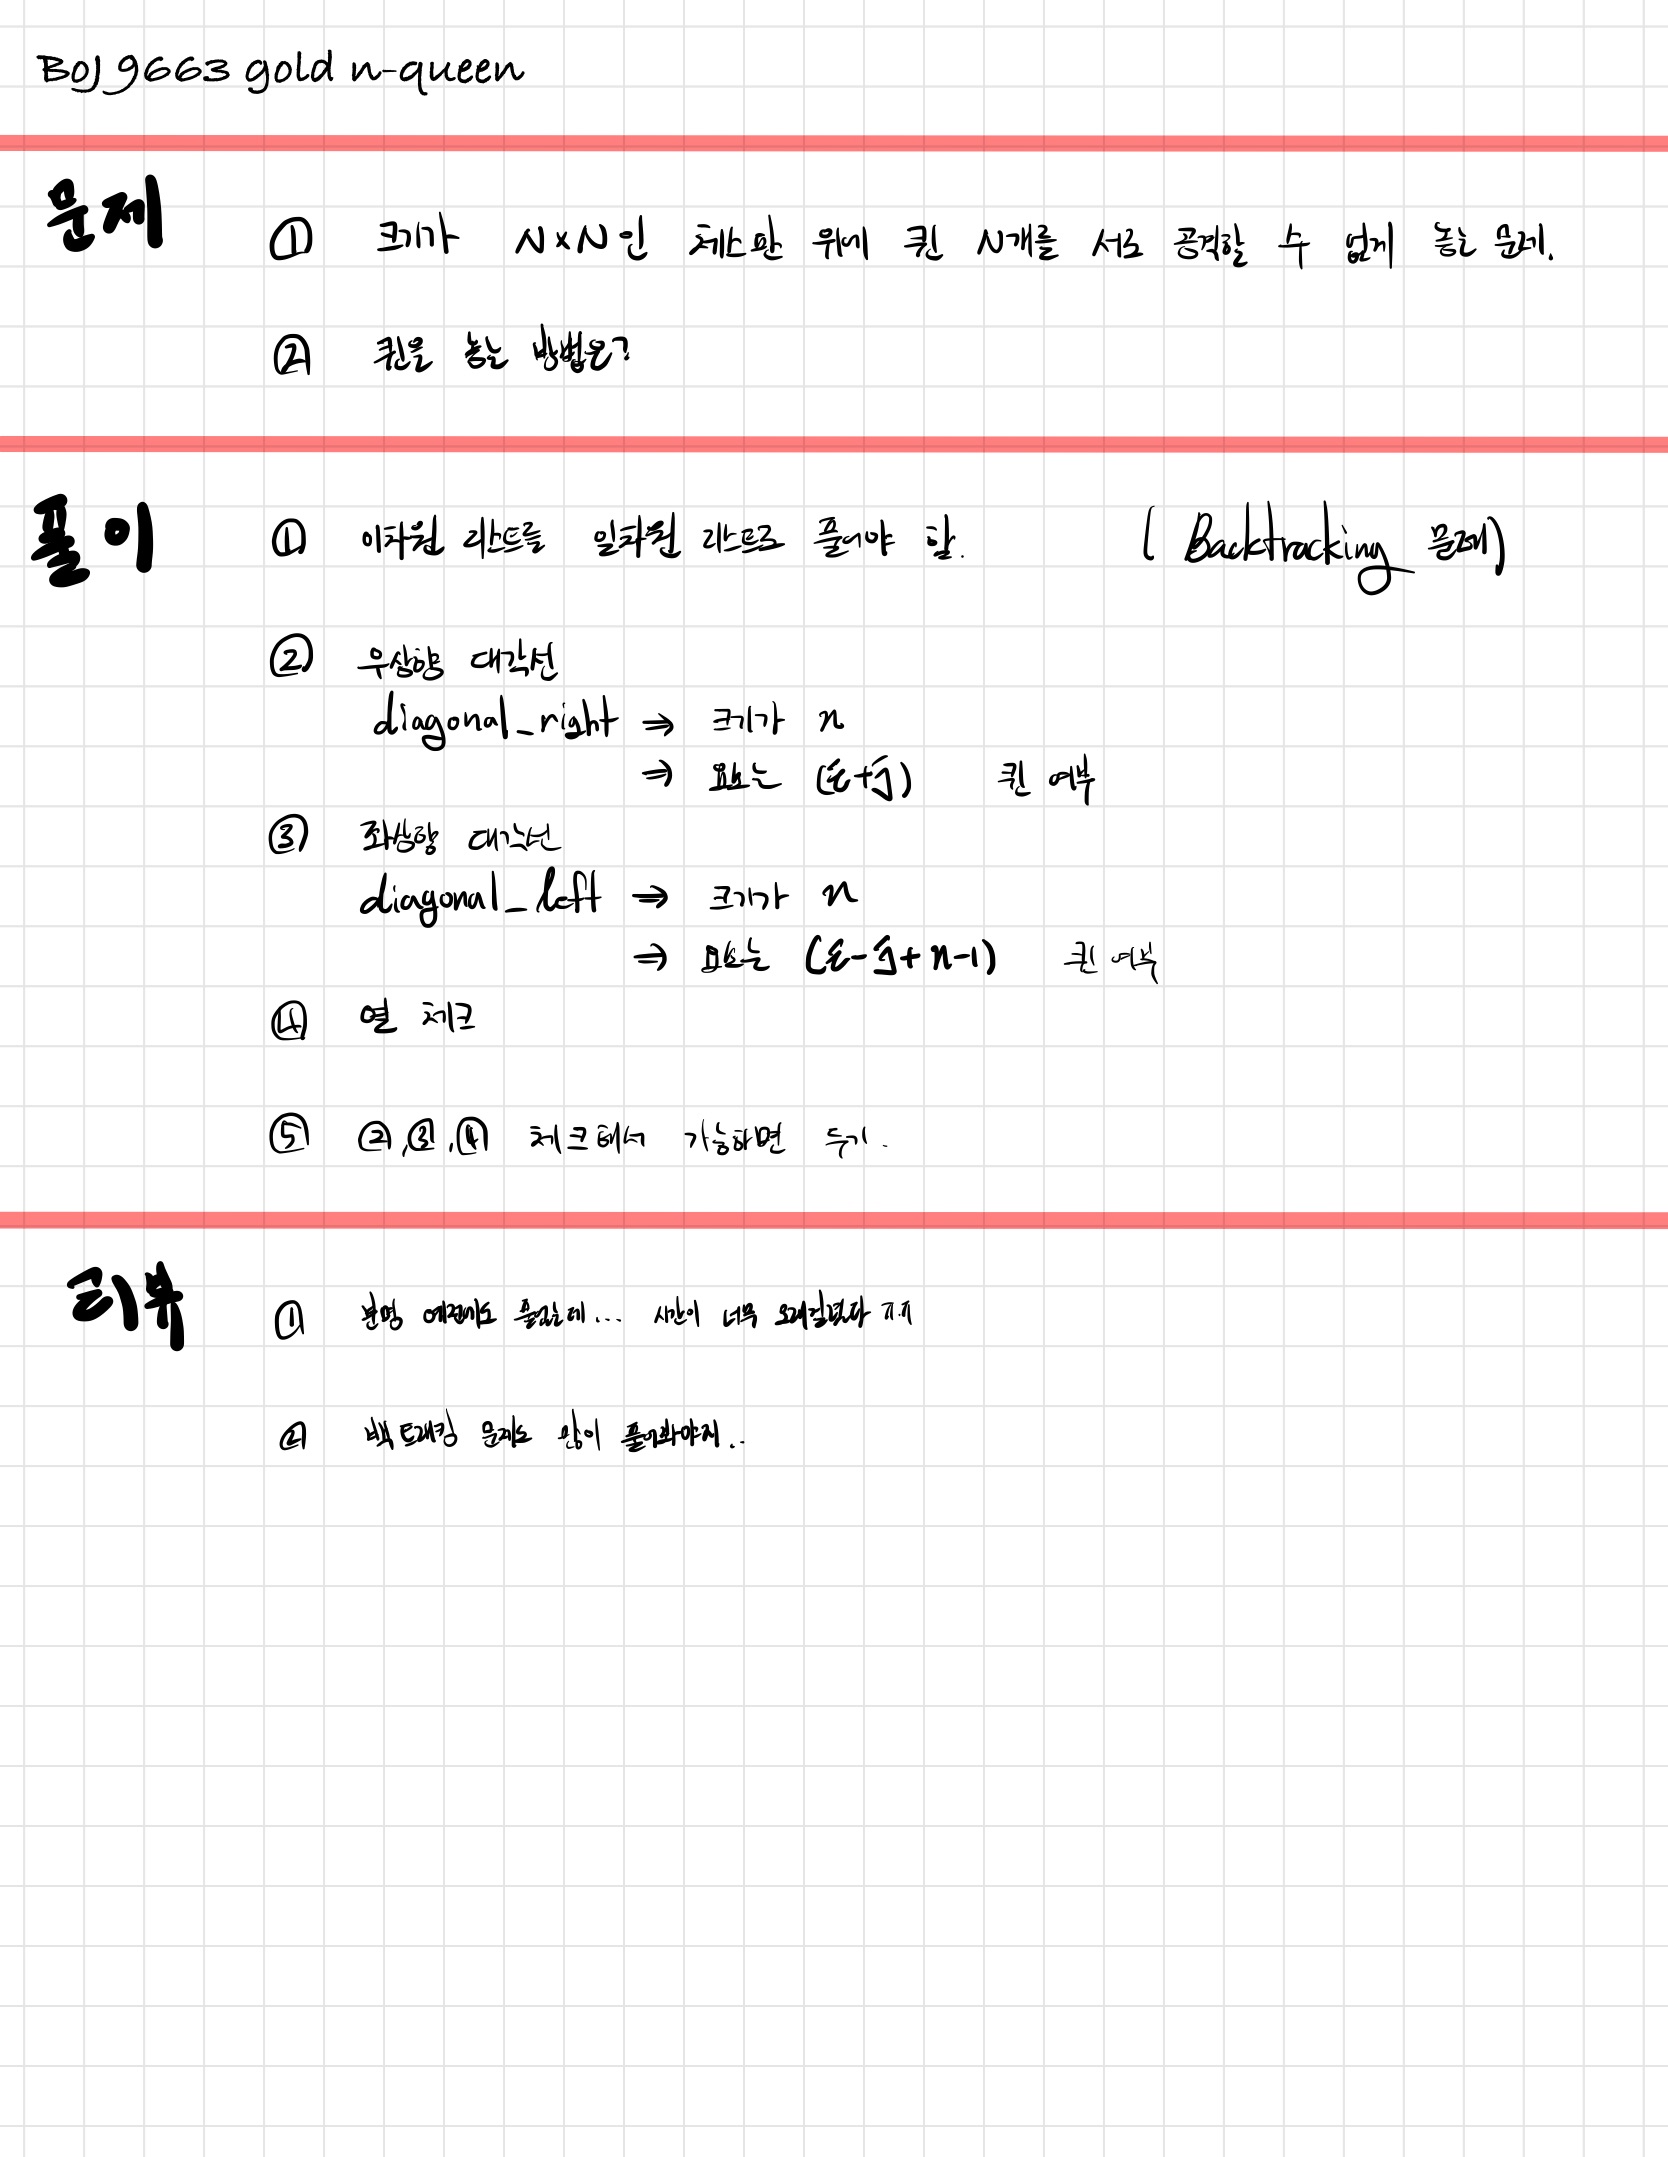 BOJ 9663 gold n-queen
문제
① 크기가 N×N인 체스판 위에 퀸 N개를 서로 공격할 수 없게 놓는 문제.
② 퀸을 놓는 방법은?
풀이
① 이차원 리스트를 일차원 리스트로 풀어야 함. (Backtracking 문제)
② 우상향 대각선
diagonal_right ⇒ 크기가 n
⇒ 요소는 (i+j) 퀸 여부
③ 좌상향 대각선
diagonal_left ⇒ 크기가 n
⇒ 요소는 (i-j+n-1) 퀸 여부
④ 열 체크
⑤ ②,③,④ 체크해서 가능하면 두기.
리뷰
① 분명 예전에도 풀었는데... 시간이 너무 오래걸렸다 ㅠㅠ
② 백트래킹 문제도 많이 풀어봐야지..